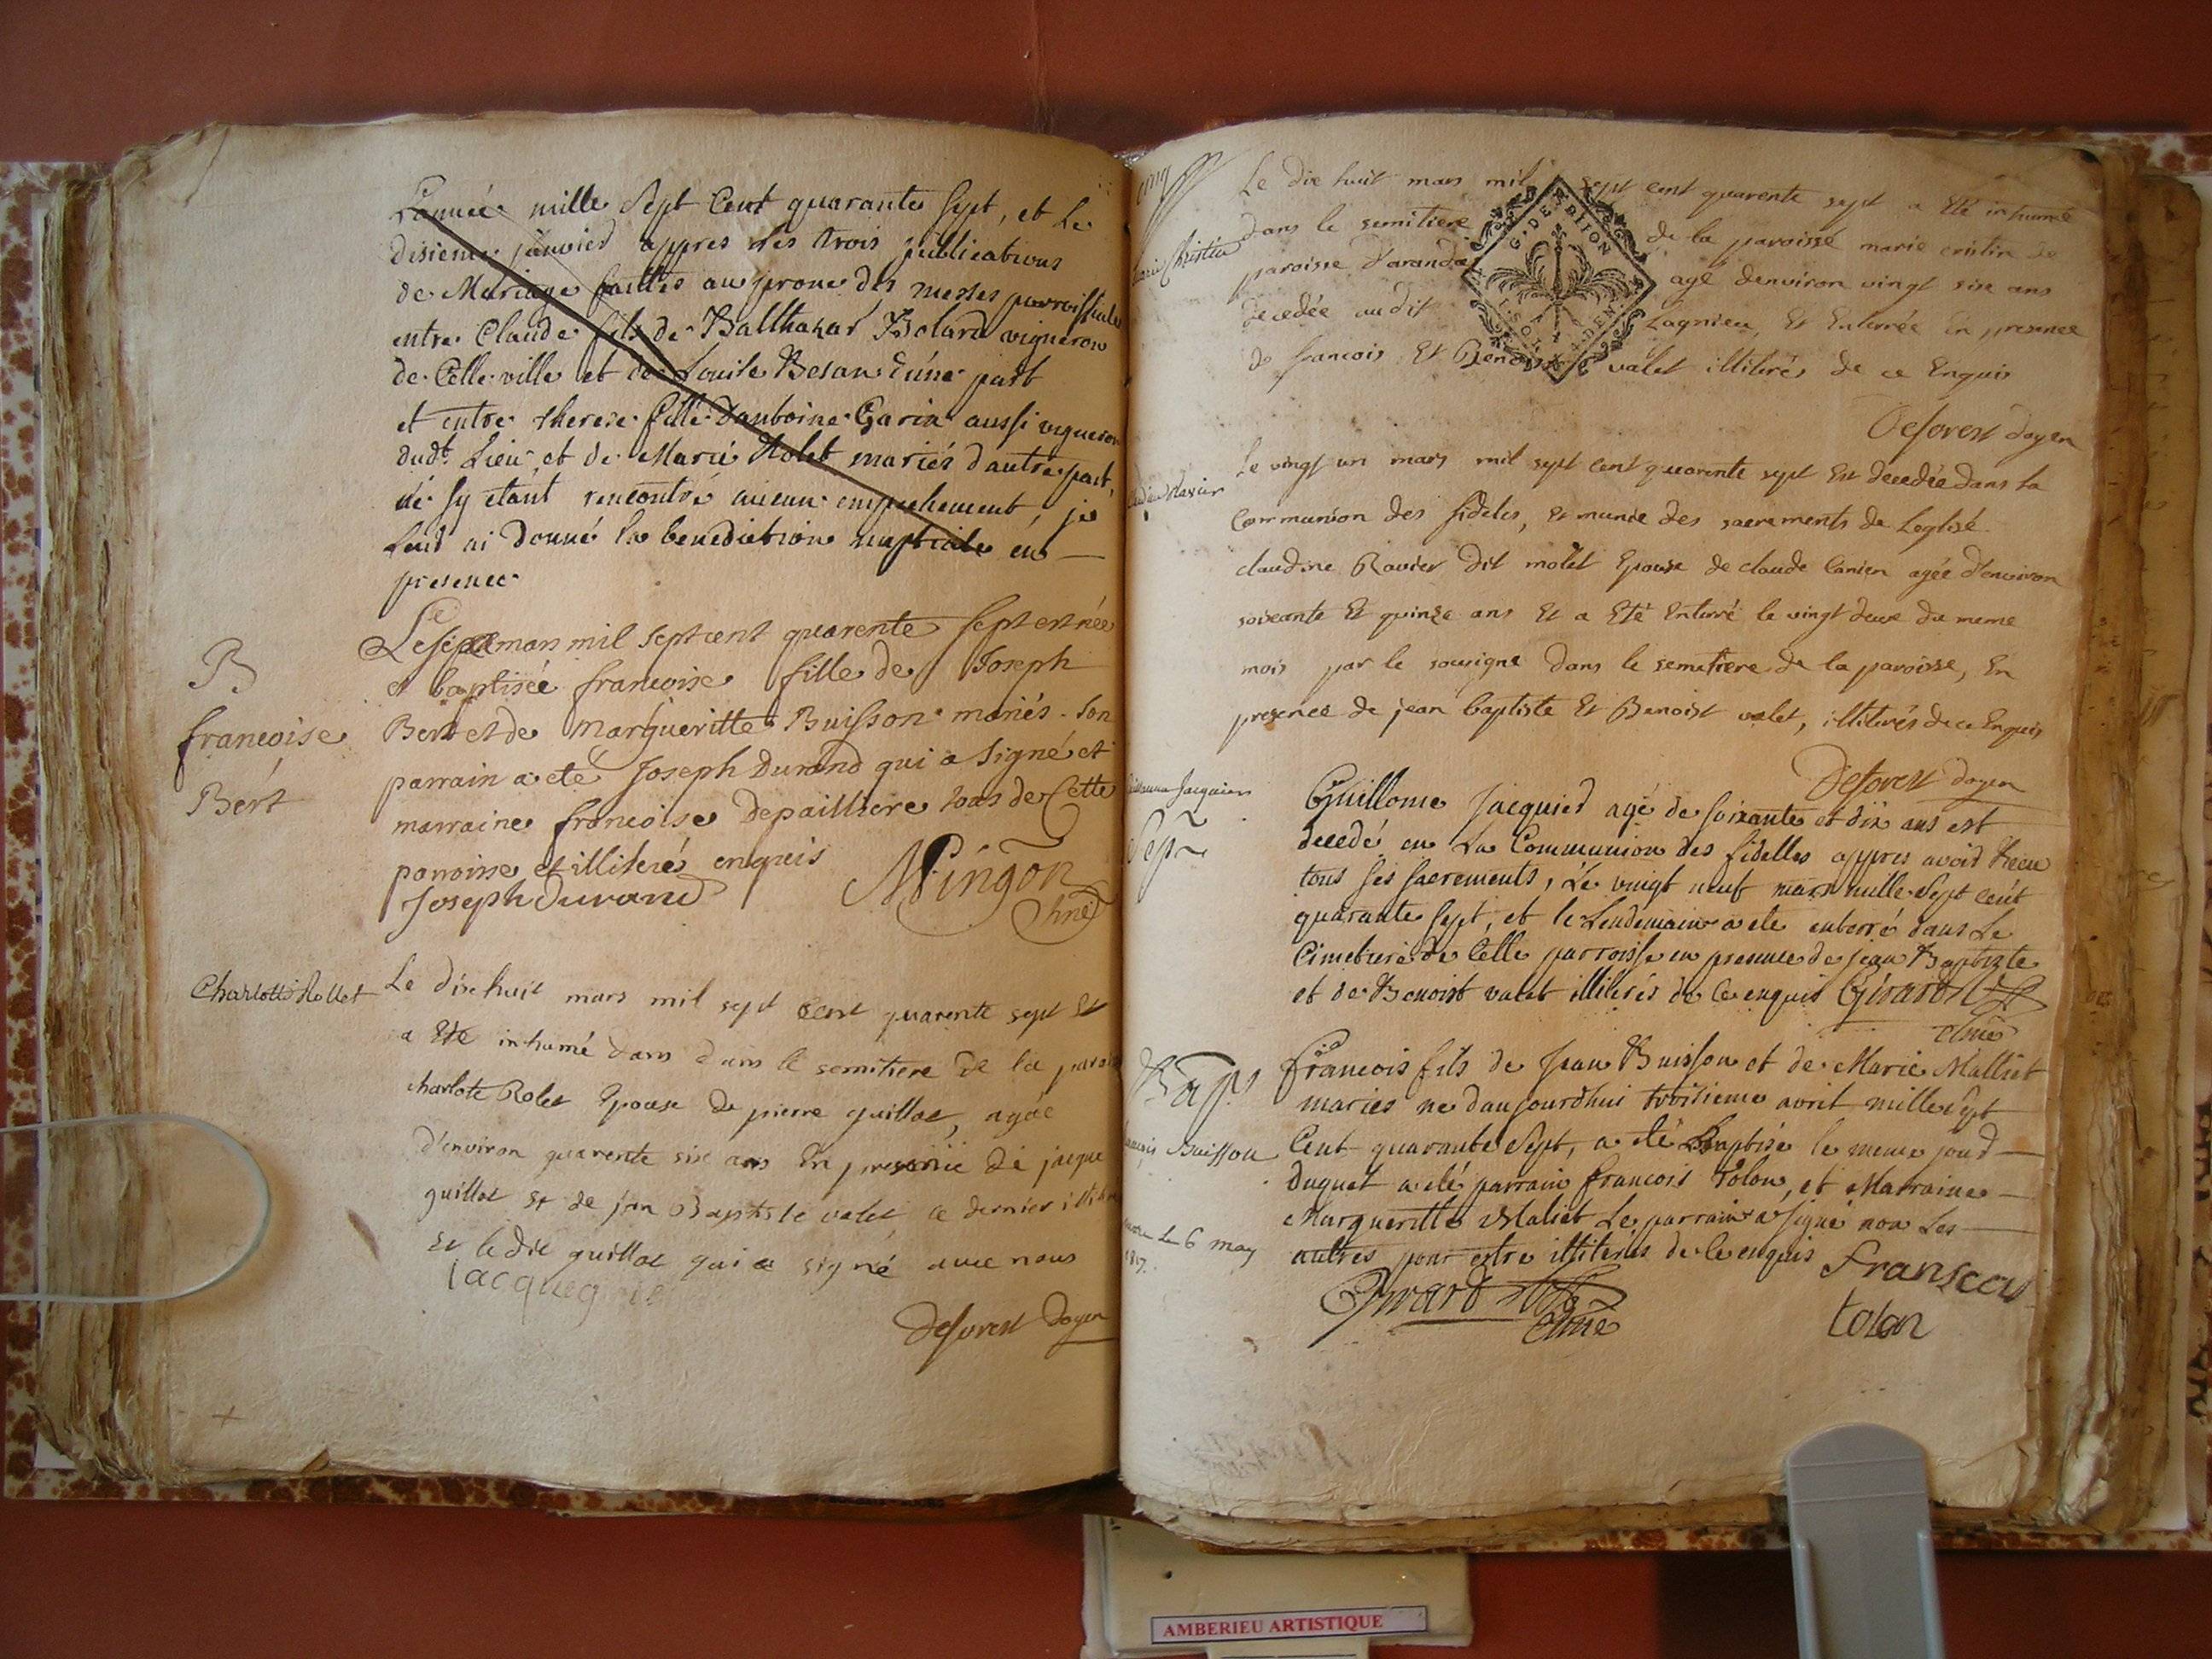 L'année mille Sept Cent quarante Sept, et Le
disieme janvier appres les trois publications
de Mariage faittes au prone des messes parroissiales
entre Claude fils de Balthazar Bolard vigneron
de Cette ville et de Louise Besan d'une part
et entre therese fille Dantoine Garin aussi vigneron
dudt Lieu et de Marie Rolet mariés d'autre part,
ne sy etant rencontré aucun empechement, je
leur ai donné la benediction nuptiale en
presence
B
françoise
Bert
Le sept mars mil sept cent quarente sept est née
et baptisée francoise fille de Joseph
Bert et de Margueritte Buisson mariés. son
parrain a ete Joseph Durand qui a signé et
marraine francoise Depailliere tous de Cette
paroisse et illiterés enquis
Joseph Durand
Mingon
Charlotte Rollet
Le dix huit mars mil sept cent quarente sept et
a Eté inhumé dans dans le semitiere de la parois
charlote Rolet Epouse de pierre guillot, agée
d'environ quarente six ans En presence de jacque
guillot et de jan Baptiste valet ce dernier illitere
Et le dit guillot qui a signé avec nous
Jacque
Deforest doyen
cinq
Marie Christin
Le dix huit mars mil sept cent quarente sept a Eté inhumé
dans le semitiere de la paroisse marie cristin de
paroisse d'aranda agé denviron vingt sixe ans
decedée audit Lagnieu, Et Enterrée En presence
de francois Et Benoist valet illiterés de ce Enquis
G. DE DIJON
Deforest doyen
Ravier
Le vingt un mars mil sept cent quarente sept Est decedée dans la
Communion des fideles, Et munie des sacrements de Leglise
claudine Ravier dit molet Epouse de claude Canier agée d'environ
soixante Et quinze ans Et a Eté Enterré le vingt deux du meme
mois par le sousigne dans le semetiere de la paroisse, En
presence de jean baptiste Et Benoist valet, illiterés de ce Enquis
Deforest doyen
Guillaume Jacquier
Sep
Guillome Jacquier agé de soixante et dix ans est
decedé en La Communion des fidelles appres avoir Receu
tous ses sacrements, Le vingt neuf mars mille Sept cent
quarante sept, et le Lendemain a ete enterré dans Le
Cimetiere de Cette parroisse en presence de jean Baptizte
et de Benoist valet illiterés de Ce enquis Girard
Bapt
francois Buisson
francois fils de Jean Buisson et de Marie Malliet
maries ne daujourdhui troisieme avril mille Sept
Cent quarante Sept, a eté Baptisé le meme jour
duquel a eté parrain francois tolon, et Marraine
Margueritte Maliet Le parrain a signé non Les
autres pour estre illiterés de Ce enquis
Le 6 may
1817.
Girard
fransecois
tolon
AMBERIEU ARTISTIQUE